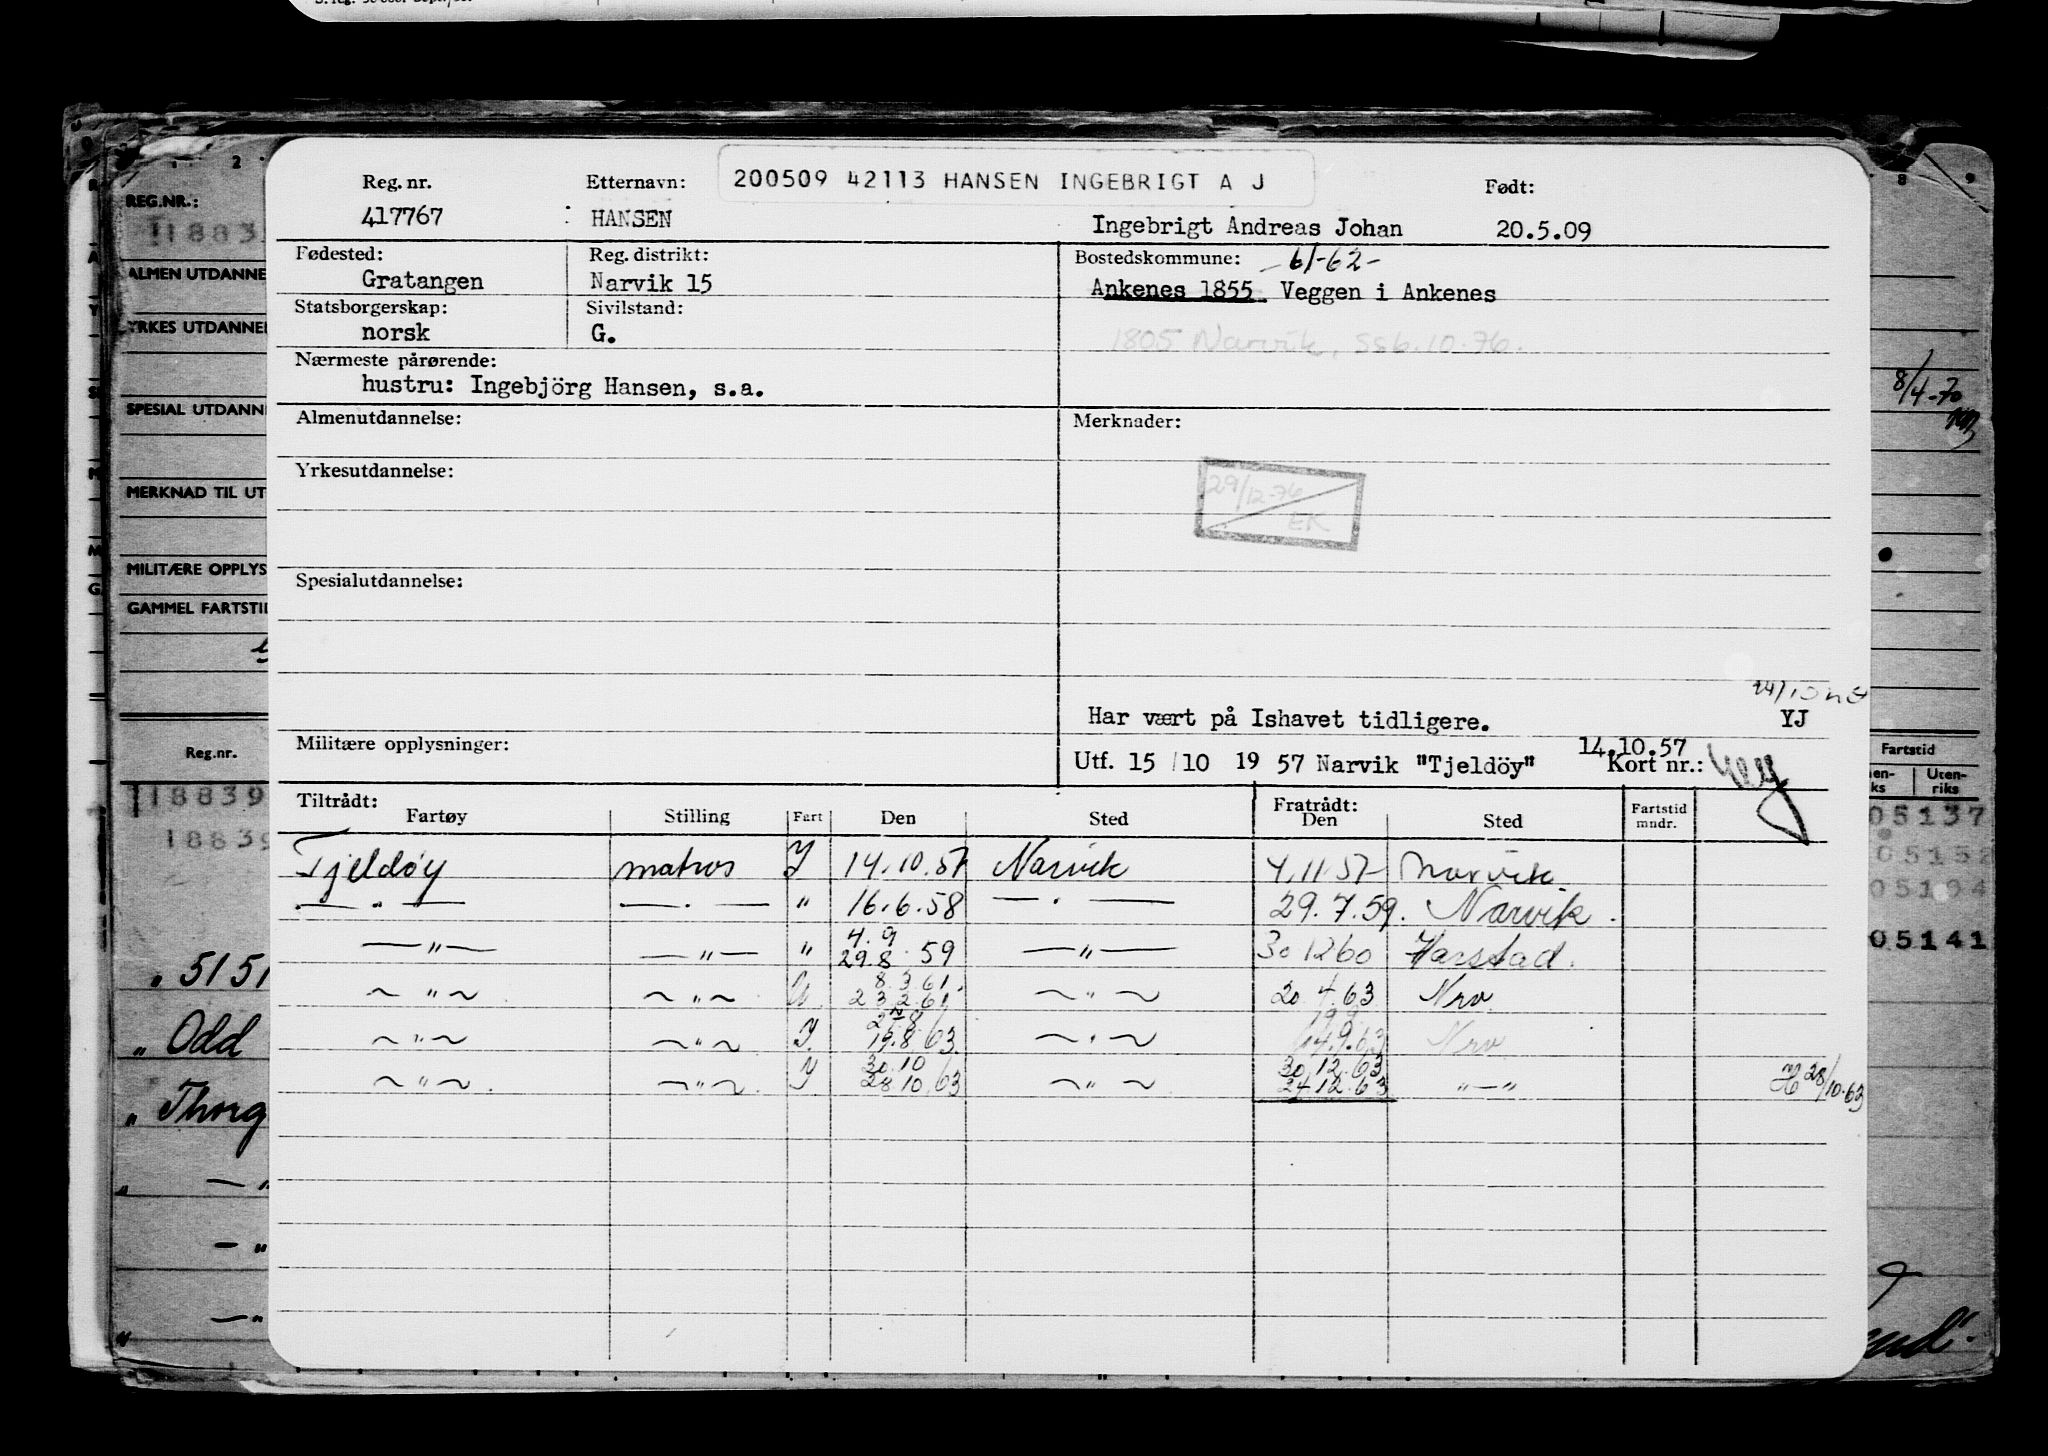 200509 42113 HANSEN INGEBRIGT A J
Reg. nr. Etternavn: Født:
417767 HANSEN Ingebrigt Andreas Johan 20.5.09
Fødested: Reg. distrikt: Bostedskommune: -61-62-
Gratangen Narvik 15 Ankenes 1855 Veggen i Ankenes
Statsborgerskap: Sivilstand:
norsk G. 1805 Narvik, ssb.10.76.
Nærmeste pårørende:
hustru: Ingebjörg Hansen, s.a.
Almenutdannelse: Merknader:
Yrkesutdannelse:
29/12-76
EK
Spesialutdannelse:
Har vært på Ishavet tidligere. YJ
Militære opplysninger: 14.10.57
Utf. 15/10 19 57 Narvik "Tjeldöy" Kort nr.:
Tiltrådt: Fratrådt:
Fartøy Stilling Fart Den Sted Den Sted Fartstid mndr.
Tjeldøy matros Y 14.10.57 Narvik 4.11.57 Narvik
— " — — . — " 16.6.58 — . — 29.7.59. Narvik.
— " — — " — " 4.9
29.8.59 — " — 30 12 60 Harstad.
~ " ~ ~ " ~ 8.3.61.
23.2.61 ~ " ~ 20.4.63 Nrv.
~ " ~ ~ " ~ Y. 19.8.63 ~ " ~ 14.9.63 Nrv
~ " ~ ~ " ~ Y 30.10
28.10.63 ~ " ~ 30.12.63
24.12.63 " — " H 28/10.63
REG.NR.:
11883
ALMEN UTDANNE
YRKES UTDANNE
SPESIAL UTDANN
MERKNAD TIL UT
MILITÆRE OPPLYS
GAMMEL FARTSTI
Reg.nr.
118839
18839
" 51 51
" Odd
" Thorg
8/4-70
Fartstid
en-
ks
Uten-
riks
05137
05152
05194
05141